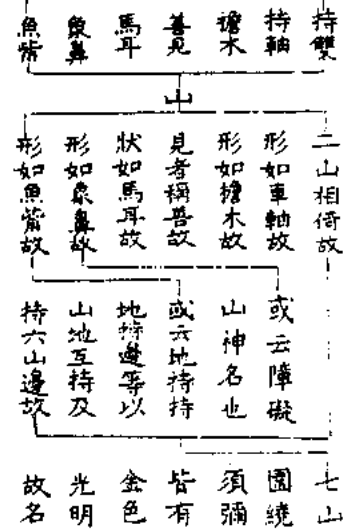 持雙
持軸
檐木
善見
馬耳
象鼻
魚觜
山
二山相倚故
形如車軸故
形如檐木故
見者稱善故
狀如馬耳故
形如象鼻故
形如魚觜故
或云障礙
山神名也
或云地持持
地邊等以
山地互持及
持六山邊故
七山
圍繞
須彌
皆有
金色
光明
故名